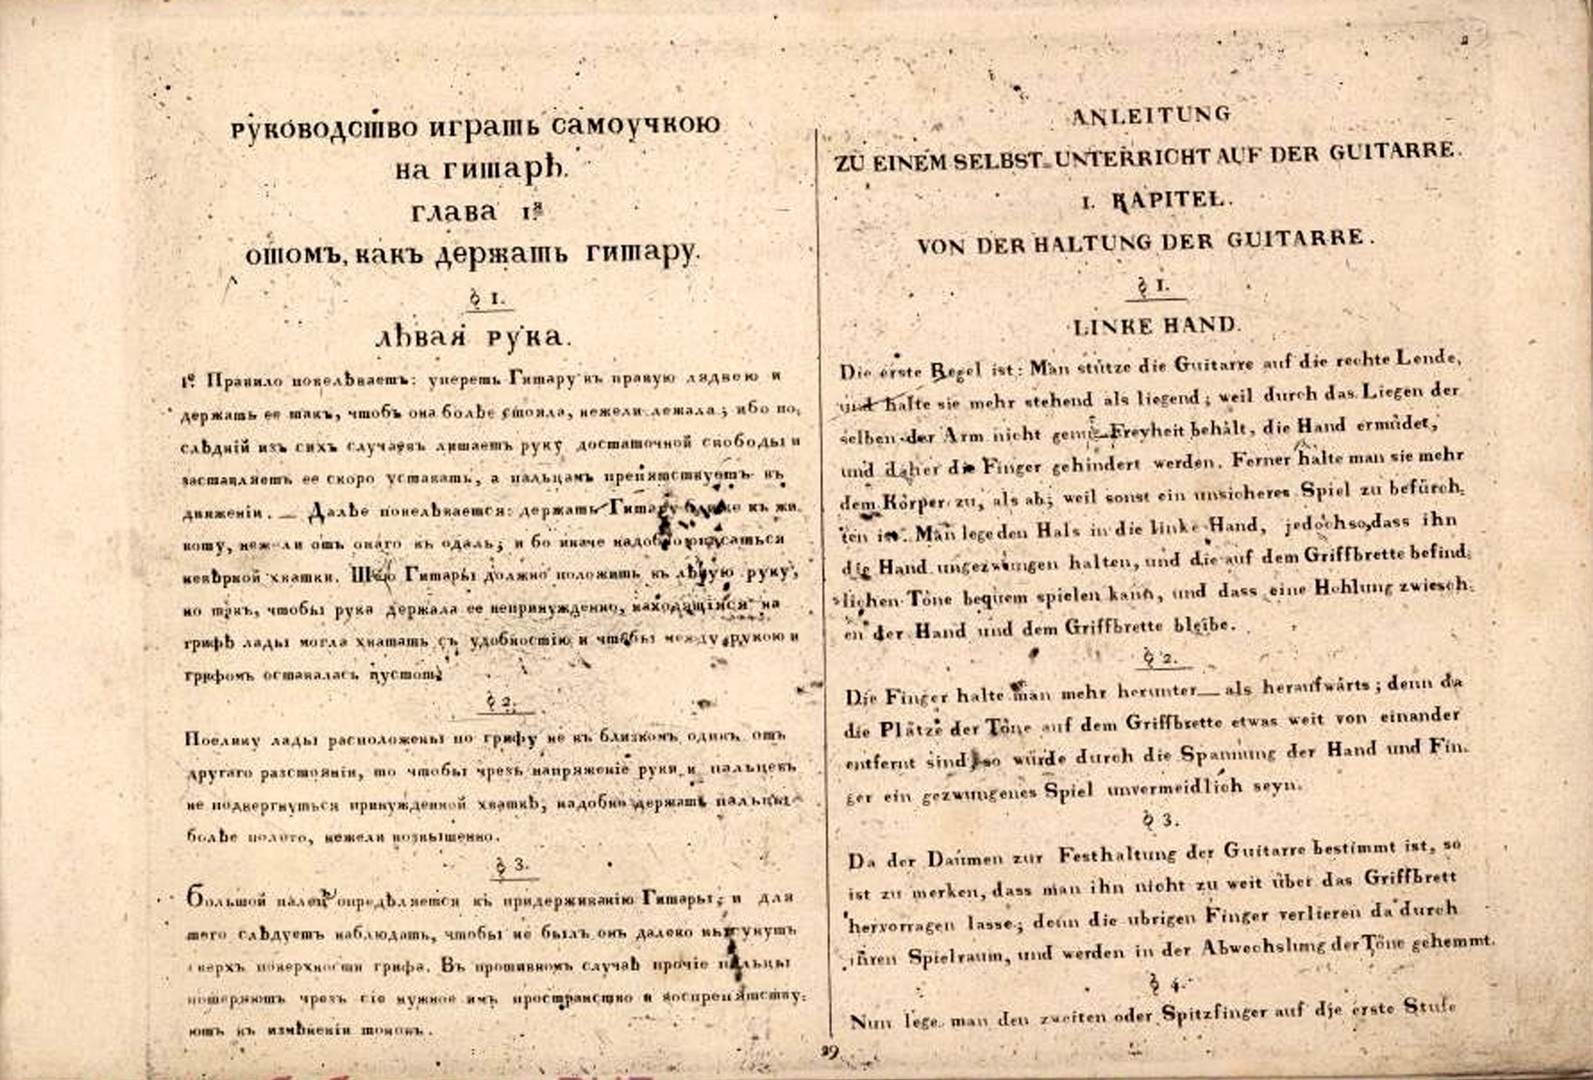 2
РУКОВОДСТВО ИГРАТЬ САМОУЧКОЮ
НА ГИТАРѢ.
ГЛАВА 1я
ОТОМЪ, КАКЪ ДЕРЖАТЬ ГИТАРУ.
§ 1.
ЛѢВАЯ РУКА.
1е Правило повелѣваетъ: упереть Гитару въ правую лядвею и
держать ее такъ, чтобъ она болѣе стояла, нежели лежала; ибо по,
слѣднiй изъ сихъ случаевъ лишаетъ руку достаточной свободы и
заставляетъ ее скоро уставать, а пальцамъ препятствуетъ въ
движенiи. — Далѣе повелѣвается: держать Гитару ближе къ жи
воту, нежели отъ онаго въ одаль; и бо иначе надобно опасаться
невѣрной хватки. Гитары должно положить въ лѣвую руку,
но такъ, чтобы рука держала ее непринужденно, находящiяся на
грифѣ лады могла хватать съ удобностiю и чтобы между рукою и
грифомъ оставалась пустота.
§ 2.
Поелику лады расположены по грифу не въ близкомъ одинъ отъ
другаго разстоянiи, то чтобы чрезъ напряженiе руки и пальцевъ
не подвергнуться принужденной хваткѣ, надобно держать пальцы
болѣе полого, нежели возвышенно.
§ 3.
Большой палецъ опредѣляется къ придерживанiю Гитары; и для
того слѣдуетъ наблюдать, чтобы не былъ онъ далеко вытунутъ
сверхъ поверхности грифа. Въ противномъ случаѣ прочiе пальцы
потеряютъ чрезъ сiе нужное имъ пространство и воспрепятству:
ютъ къ измѣненiи тоновъ.
ANLEITUNG
ZU EINEM SELBST-UNTERRICHT AUF DER GUITARRE.
I. KAPITEL.
VON DER HALTUNG DER GUITARRE.
§ 1.
LINKE HAND.
Die erste Regel ist: Man stütze die Guitarre auf die rechte Lende,
und halte sie mehr stehend als liegend; weil durch das Liegen der
selben der Arm nicht genug Freyheit behält, die Hand ermüdet,
und daher die Finger gehindert werden. Ferner halte man sie mehr
dem Körper zu, als ab; weil sonst ein unsicheres Spiel zu befürch:
ten ist. Man lege den Hals in die linke Hand, jedoch so, dass ihn
die Hand ungezwungen halten, und die auf dem Griffbrette befind:
lichen Töne bequem spielen kann, und dass eine Hohlung zwiesch:
en der Hand und dem Griffbrette bleibe.
§ 2.
Die Finger halte man mehr herunter — als heraufwärts; denn da
die Plätze der Töne auf dem Griffbrette etwas weit von einander
entfernt sind, so würde durch die Spannung der Hand und Fin:
ger ein gezwungenes Spiel unvermeidlich seyn.
§ 3.
Da der Daumen zur Festhaltung der Guitarre bestimmt ist, so
ist zu merken, dass man ihn nicht zu weit über das Griffbrett
hervorragen lasse; denn die ubrigen Finger verlieren da durch
ihren Spielraum, und werden in der Abwechslung der Töne gehemmt.
§ 4.
Nun lege man den zweiten oder Spitzfinger auf die erste Stufe
29